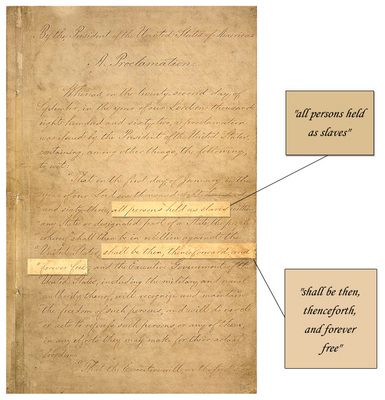 By the President of the United States of America
A Proclamation.
Whereas, on the twenty-second day of
September, in the year of our Lord one thousand
eight hundred and sixty-two, a proclamation
was issued by the President of the United States,
containing, among other things, the following,
to wit:
"That on the first day of January, in the
year of our Lord one thousand eight hundred
and sixty-three, all persons held as slaves within
any State or designated part of a State, the people
whereof shall then be in rebellion against the
United States, shall be then, thenceforward, and
forever free; and the Executive Government of the
United States, including the military and naval
authority thereof, will recognize and maintain
the freedom of such persons, and will do no act
or acts to repress such persons, or any of them,
in any efforts they may make for their actual
freedom.
"That the Executive will, on the first
"all persons held
as slaves"
"shall be then,
thenceforth,
and forever
free"